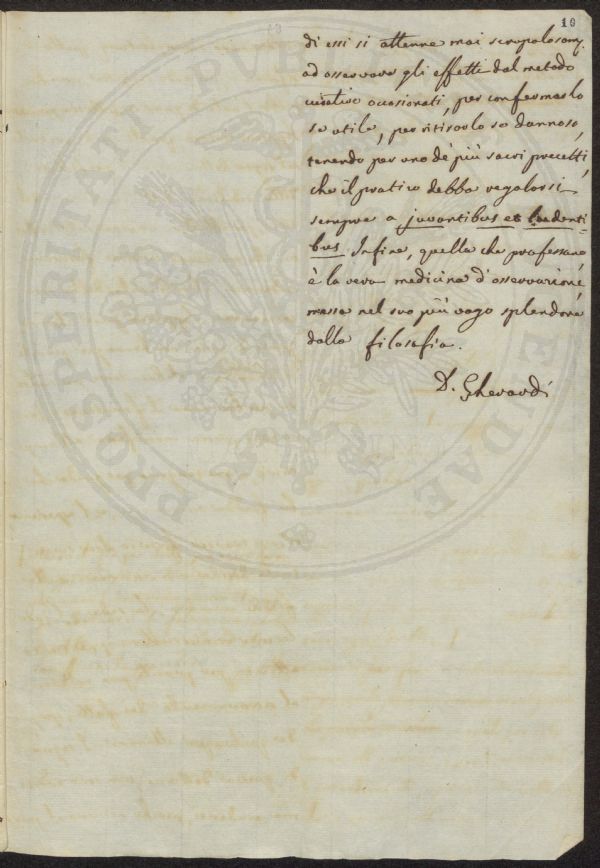 19
di essi si attenne mai scrupolosam.
ad osservare gli effetti dal metodo
curativo occasionati, per confermarlo
se utile, per ritirarlo se dannoso,
tenendo per uno de' più sacri precetti,
che il pratico debba regolarsi
sempre a juvantibus et laedenti-
bus. Infine, quella che professano
è la vera medicina d'osservazione
messa nel suo più vago splendore
dalla filosofia.
D. Gherardi
PROSPERITATI PUBLICAE AUGENDAE